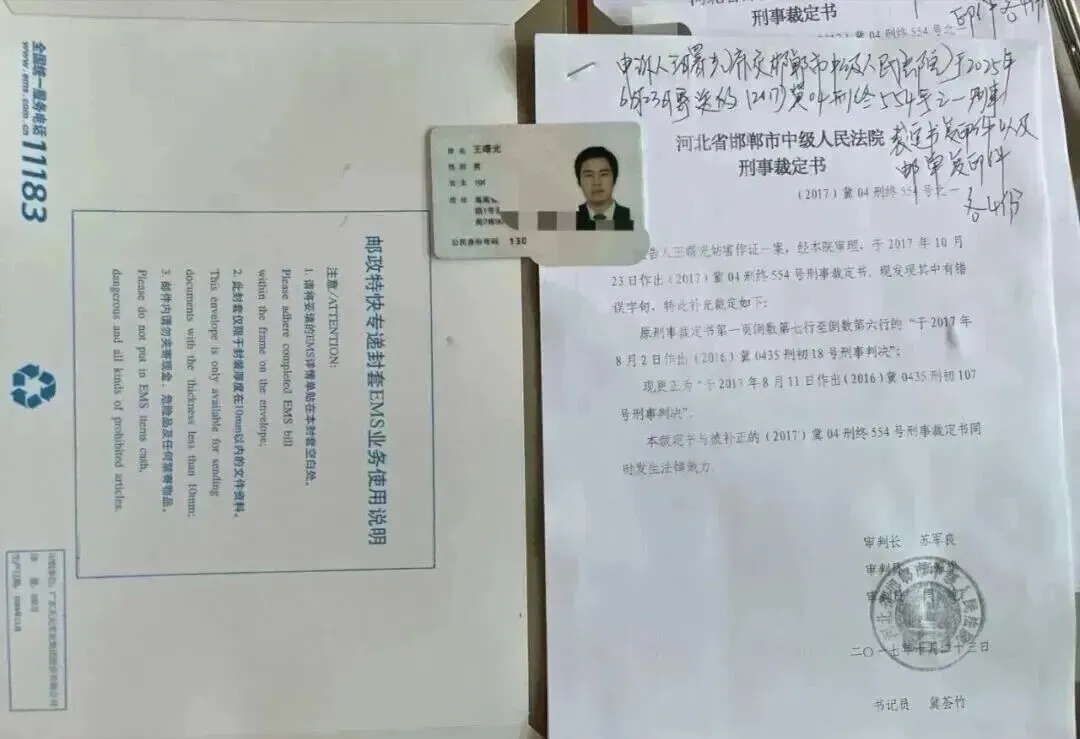 全国统一服务电话 11183
www.ems.com.cn
邮政特快专递封套EMS业务使用说明
注意/ATTENTION:
1. 请将妥填的EMS详情单贴在本封套空白处。
Please adhere completed EMS bill
within the frame on the envelope;
2. 此封套仅限于封装厚度在10mm以内的文件资料。
This envelope is only available for sending
documents with the thickness less than 10mm;
3. 邮件内请勿夹寄现金、危险品及任何禁寄物品。
Please do not put in EMS items cash,
dangerous and all kinds of prohibited articles.
姓名 王曙光
性别 男
出生 19
住址 海南省
路1号
公民身份号码 130
刑事裁定书
(2017)冀 04 刑终 554 号之一
各4份
申诉人王曙光
邯郸市中级人民法院)于2025年
6月23日寄送的(2017)冀04刑终554号之一刑事
裁定书复印件以及
邮单复印件
各4份
河北省邯郸市中级人民法院
刑事裁定书
(2017)冀 04 刑终 554 号之一
告人王曙光妨害作证一案,经本院审理,于 2017 年 10 月
23 日作出(2017)冀 04 刑终 554 号刑事裁定书。现发现其中有错
误字句,特此补充裁定如下:
原刑事裁定书第一页倒数第七行至倒数第六行的“于 2017 年
8 月 2 日作出(2016)冀 0435 刑初 18 号刑事判决”;
现更正为“于 2017 年 8 月 11 日作出(2016)冀 0435 刑初 107
号刑事判决”。
本裁定书与被补正的(2017)冀 04 刑终 554 号刑事裁定书同
时发生法律效力。
审判长 苏军良
审判员
审判员
河北省邯郸市中级人民法院
二〇一七年十月二十三日
书记员 冀荟竹